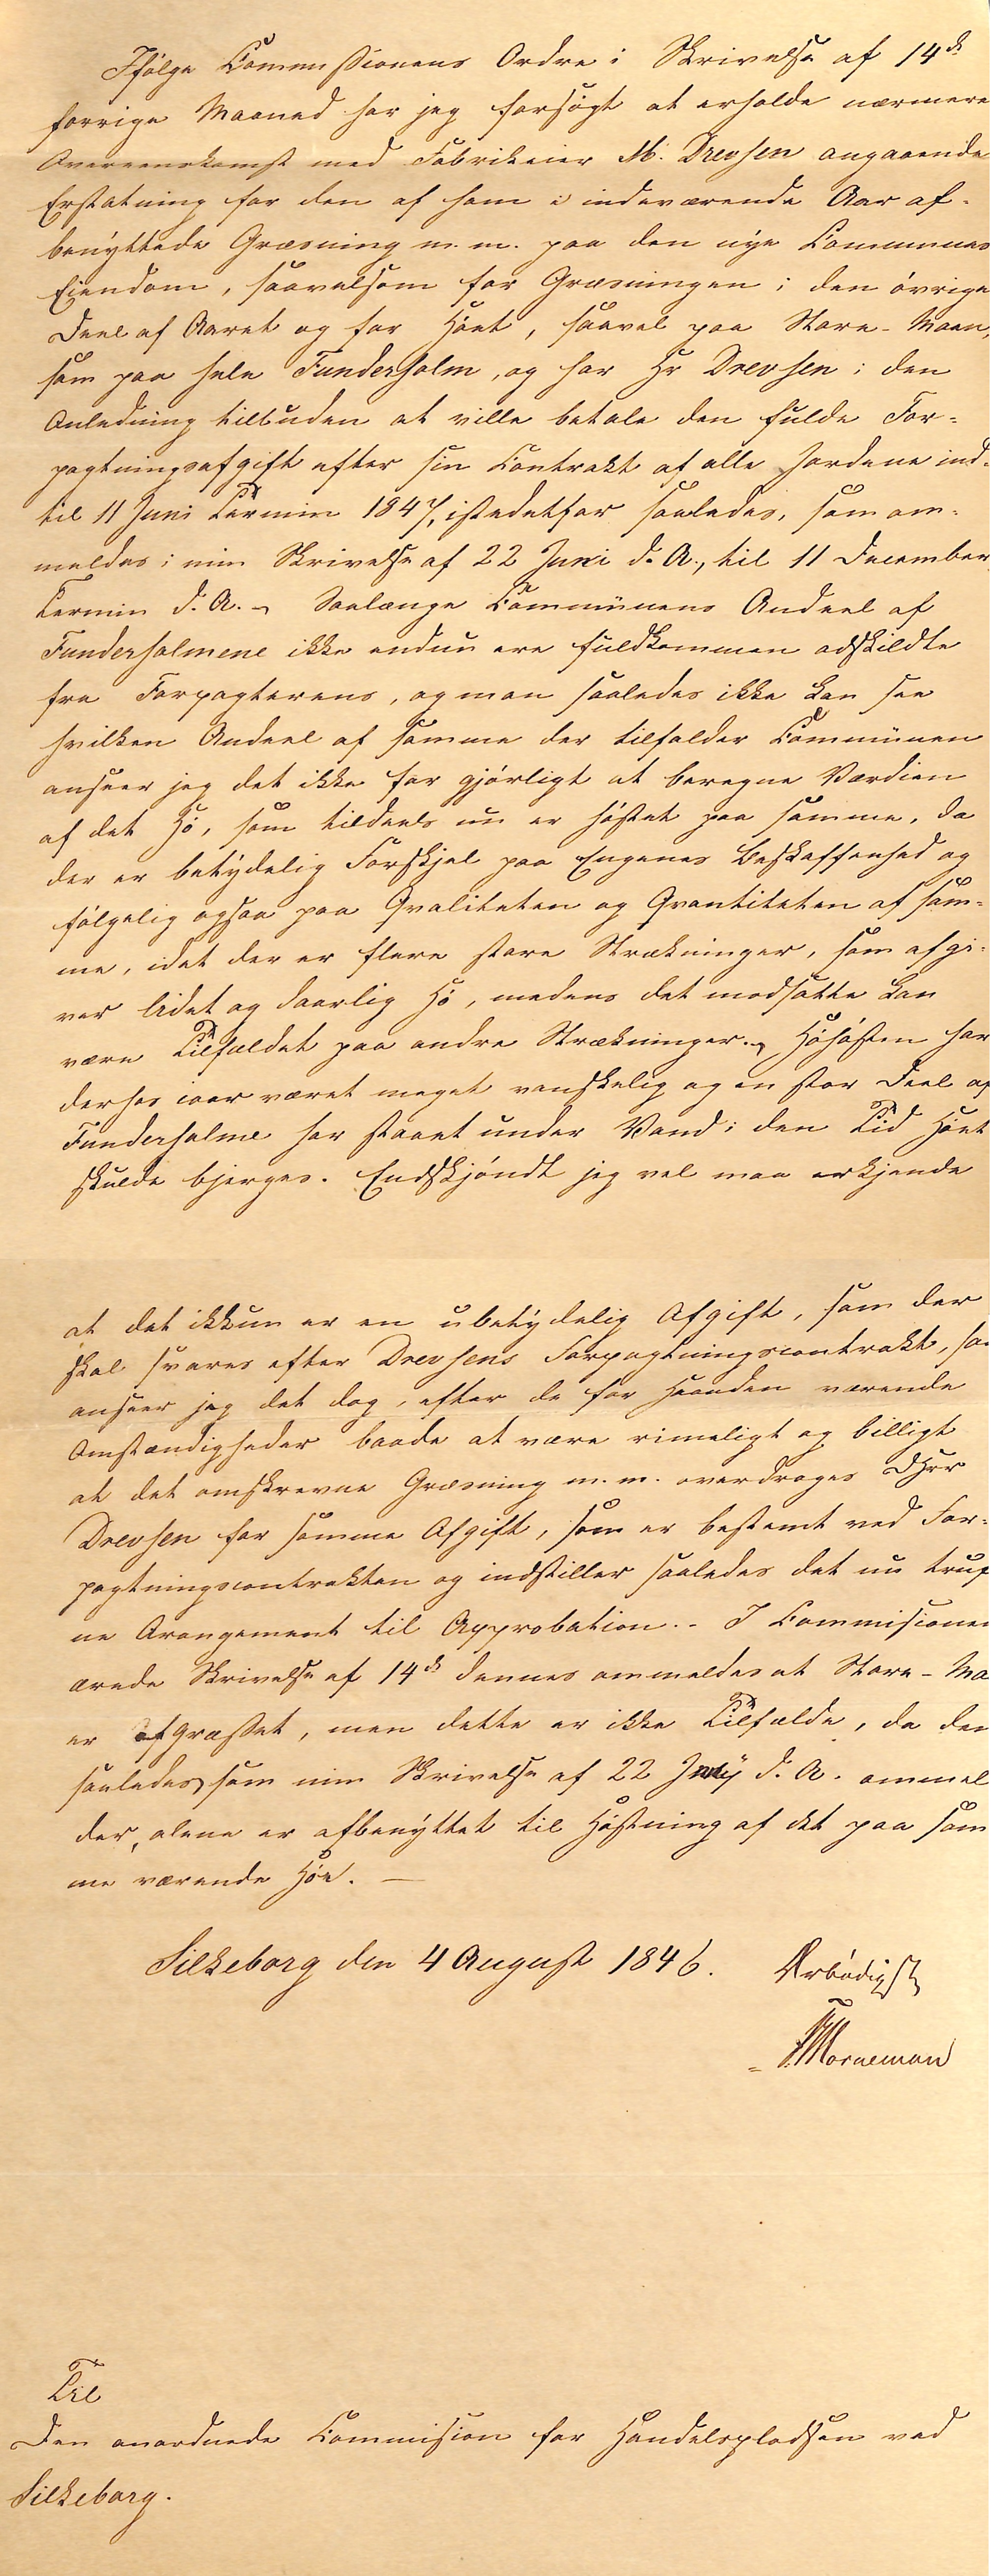 Ifølge Commissionens Ordre i Skrivelse af 14de
forrige Maaned har jeg forsøgt at erholde nærmere
Overeenskomst med Fabrikeier M. Drewsen angaaende
Erstatning for den af ham i indeværende Aar af-
benyttede Græsning m. m. paa den nye Communes
Eiendom, saavelsom for Græsningen i den øvrige
Deel af Aaret og for Høet, saavel paa Store-Maen,
som paa hele Funderholm, og har Hr Drewsen i den
Anledning tilbuden at ville betale den fulde For-
pagtningsafgift efter sin Contrakt af alle Jordene ind-
til 11 Juni Termin 1847, istedetfor saaledes, som om-
meldes i min Skrivelse af 22 Juni d. A., til 11 December
Termin d. A. - Saalænge Communens Andeel af
Funderholmene ikke endnu ere fuldkommen adskildte
fra Forpagterens, og man saaledes ikke kan see
hvilken Andeel af samme der tilfalder Communen
anseer jeg det ikke for gjørligt at beregne Værdien
af det Hø, som tildeels nu er høstet paa samme, da
der er betydelig Forskjel paa Engenes Beskaffenhed og
følgelig ogsaa paa Qvaliteten og Qvantiteten af sam-
me, idet der er flere store Strækninger, som afgi-
ver lidet og daarlig Hø, medens det modsatte kan
være Tilfældet paa andre Strækninger. - Høhøsten har
derhos iaar været meget vanskelig og en stor Deel af
Funderholme har staaet under Vand i den Tid Høet
skulde bjerges. Endskjøndt jeg vel maa erkjende
at det ikkun er en ubetydelig Afgift, som der
skal svares efter Drewsens Forpagtningscontrakt, saa
anseer jeg det dog, efter de for Haanden værende
Omstændigheder baade at være rimeligt og billigt
at det omskrevne Græsning m. m. overdrages DHrr
Drewsen for samme Afgift, som er bestemt ved For-
pagtningscontrakten og indstiller saaledes det nu truf
ne Arangement til Approbation. - I Commisionens
ærede Skrivelse af 14de dennes ommeldes at Store-Ma
er afgræsset, men dette er ikke Tilfælde, da den
saaledes som min Skrivelse af 22 Juny d. A. ommel
der, alene er afbenyttet til Høstning af det paa sam
me værende Høe. -
Silkeborg den 4 August 1846. Ærbødigst
Morneman
Til
Den anordnede Commision for Handelspladsen ved
Silkeborg.